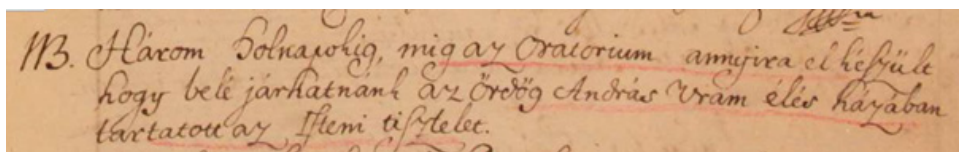 NB. Három Holnapokig, mig az Oratorium annyira el készült
hogy belé járhatnánk az Ördög András Uram élés házában
tartatott az Isteni tisztelet.